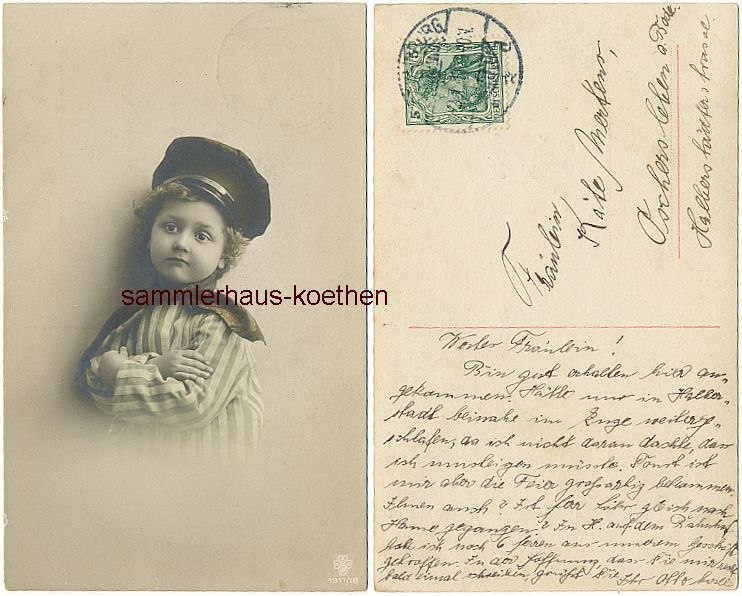 sammlerhaus-koethen
1917/18
5
Fräulein
Käte Mertens,
Oschersleben a. Bode.
Halberstädterstrasse
Wertes Fräulein!
Bin gut erhalten hier an-
gekommen. Hätte nur in Halber-
stadt beinahe im Zuge weiterge-
schlafen, da ich nicht daran dachte, dass
ich umsteigen müsste. Sonst ist
mir aber die Feier großartig bekommen.
Ihnen auch? Ist gleich nach
Hause gegangen? In H. auf dem Bahnhof
habe ich noch 6 aus unserem Geschäft
getroffen. In der Hoffnung, dass Sie mir recht
bald einmal schreiben, grüßt Sie Ihr Otto